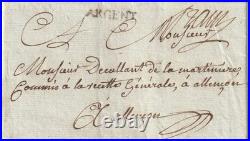 ARGENT
A Monsieur
Monsieur Decullant de la martiniere
Commis à la recette Générale, à allençon
Allençon